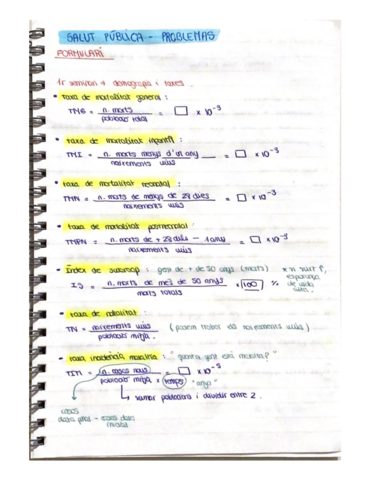 SALUT PÚBLICA - PROBLEMAS
FORMULARI
1r seminari → demografia i taxes.
• taxa de mortalitat general :
TMG = n. morts / població total = □ x 10⁻³
• taxa de mortalitat infantil :
TMI = n. morts menys d'un any / naixements vius = □ x 10⁻³
• taxa de mortalitat neonatal :
TMN = n. morts de menys de 28 dies / naixements vius = □ x 10⁻³
• taxa de mortalitat postneonatal :
TMPN = n. morts de + 28 dies - 1 any / naixements vius = □ x 10⁻³
• Índex de Swaroop : gent de + de 50 anys (morts)
* n surt ↑, esperança de vida
IS = n. morts de més de 50 anys / morts totals x 100 %
• taxa de natalitat :
TN = naixements vius / població mitja. (podem trobar els naixements vius)
• taxa incidència : "quanta gent està malalta?"
TIM = n. casos nous / població mitja x temps = □ x 10⁻³
"anys"
↳ sumar poblacions i dividir entre 2.
casos